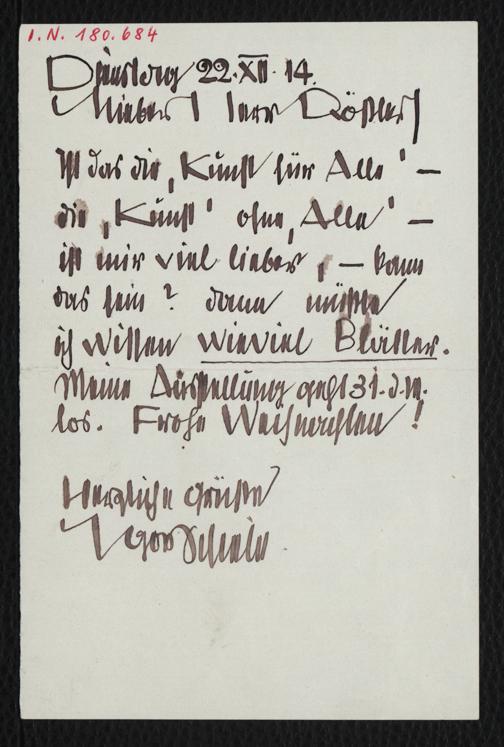 I.N. 180.684
Dienstag 22.XII.14.
Lieber Herr Rößler!
Ist das die „Kunst für Alle‘ —
die „Kunst‘ ohne „Alle‘ —
ist mir viel lieber, — kann
das sein? dann müßte
ich wissen wieviel Blätter.
Meine Ausstellung geht 31. d. M.
los. Frohe Weihnachten!
Herzliche Grüße
Egon Schiele.